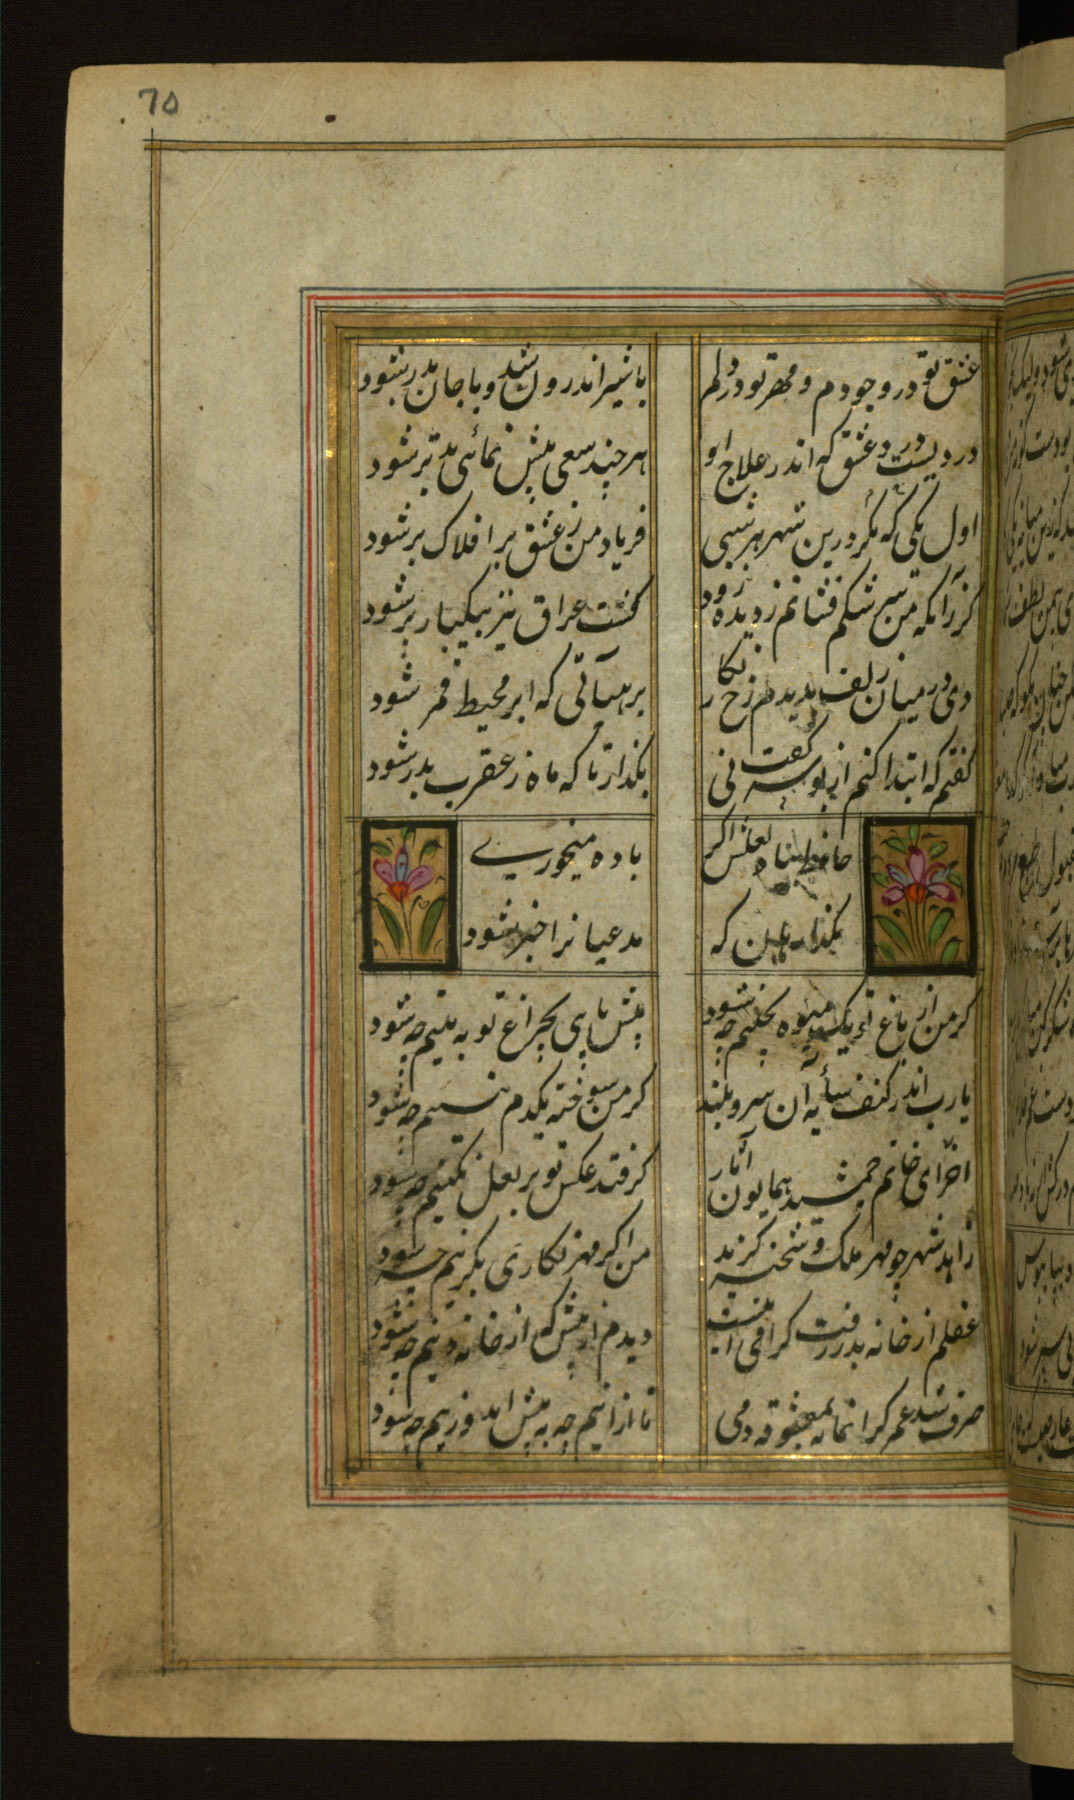 70
عشق تو در وجودم و مهر تو در دلم
با شیر اندرون شد و با جان بدر شود
دردیست درد عشق که اندر علاج او
هر چند سعی بیش نمائی بتر شود
اول یکی که مکر درین شهر هر شبی
فریاد من ز عشق بر افلاک بر شود
کر زآنکه من سرشکم فشانم ز دیده رود
کشت عراق نیز بیکبار بر شود
دی در میان زلف بدیدم رخ نکار
بر هیبآتی که ابر محیط قمر شود
کفتم که ابتدا کنم از بوسه کفت نی
بکذار تا که ماه ز عقرب بدر شود
حافظ بیاد لعلش اکر
باده میخوری
بکذار هین که
مدعیانرا خبر شود
کر من از باغ تو یک میوه بچینم چه شود
پیش پای بچراغ تو به بینم چه شود
یارب اندر کنف سأیه آن سرو بلند
کر من سوخته یکدم بنشینم چه شود
آخر ای خاتم جمشید همایون آثار
کر فتد عکس تو بر لعل نکینم چه شود
زاهد شهر چو مهر ملک و شحنه کزید
من اکر مهر نکاری بکزینم چه شود
عقلم از خانه بدر رفت کر می اینست
دیدم از پیش که از خانه دینم چه شود
صرف شد عمر کرانمایه بمعشوقه و می
تا از آنیم چه به پیش اید و زینم چه شود